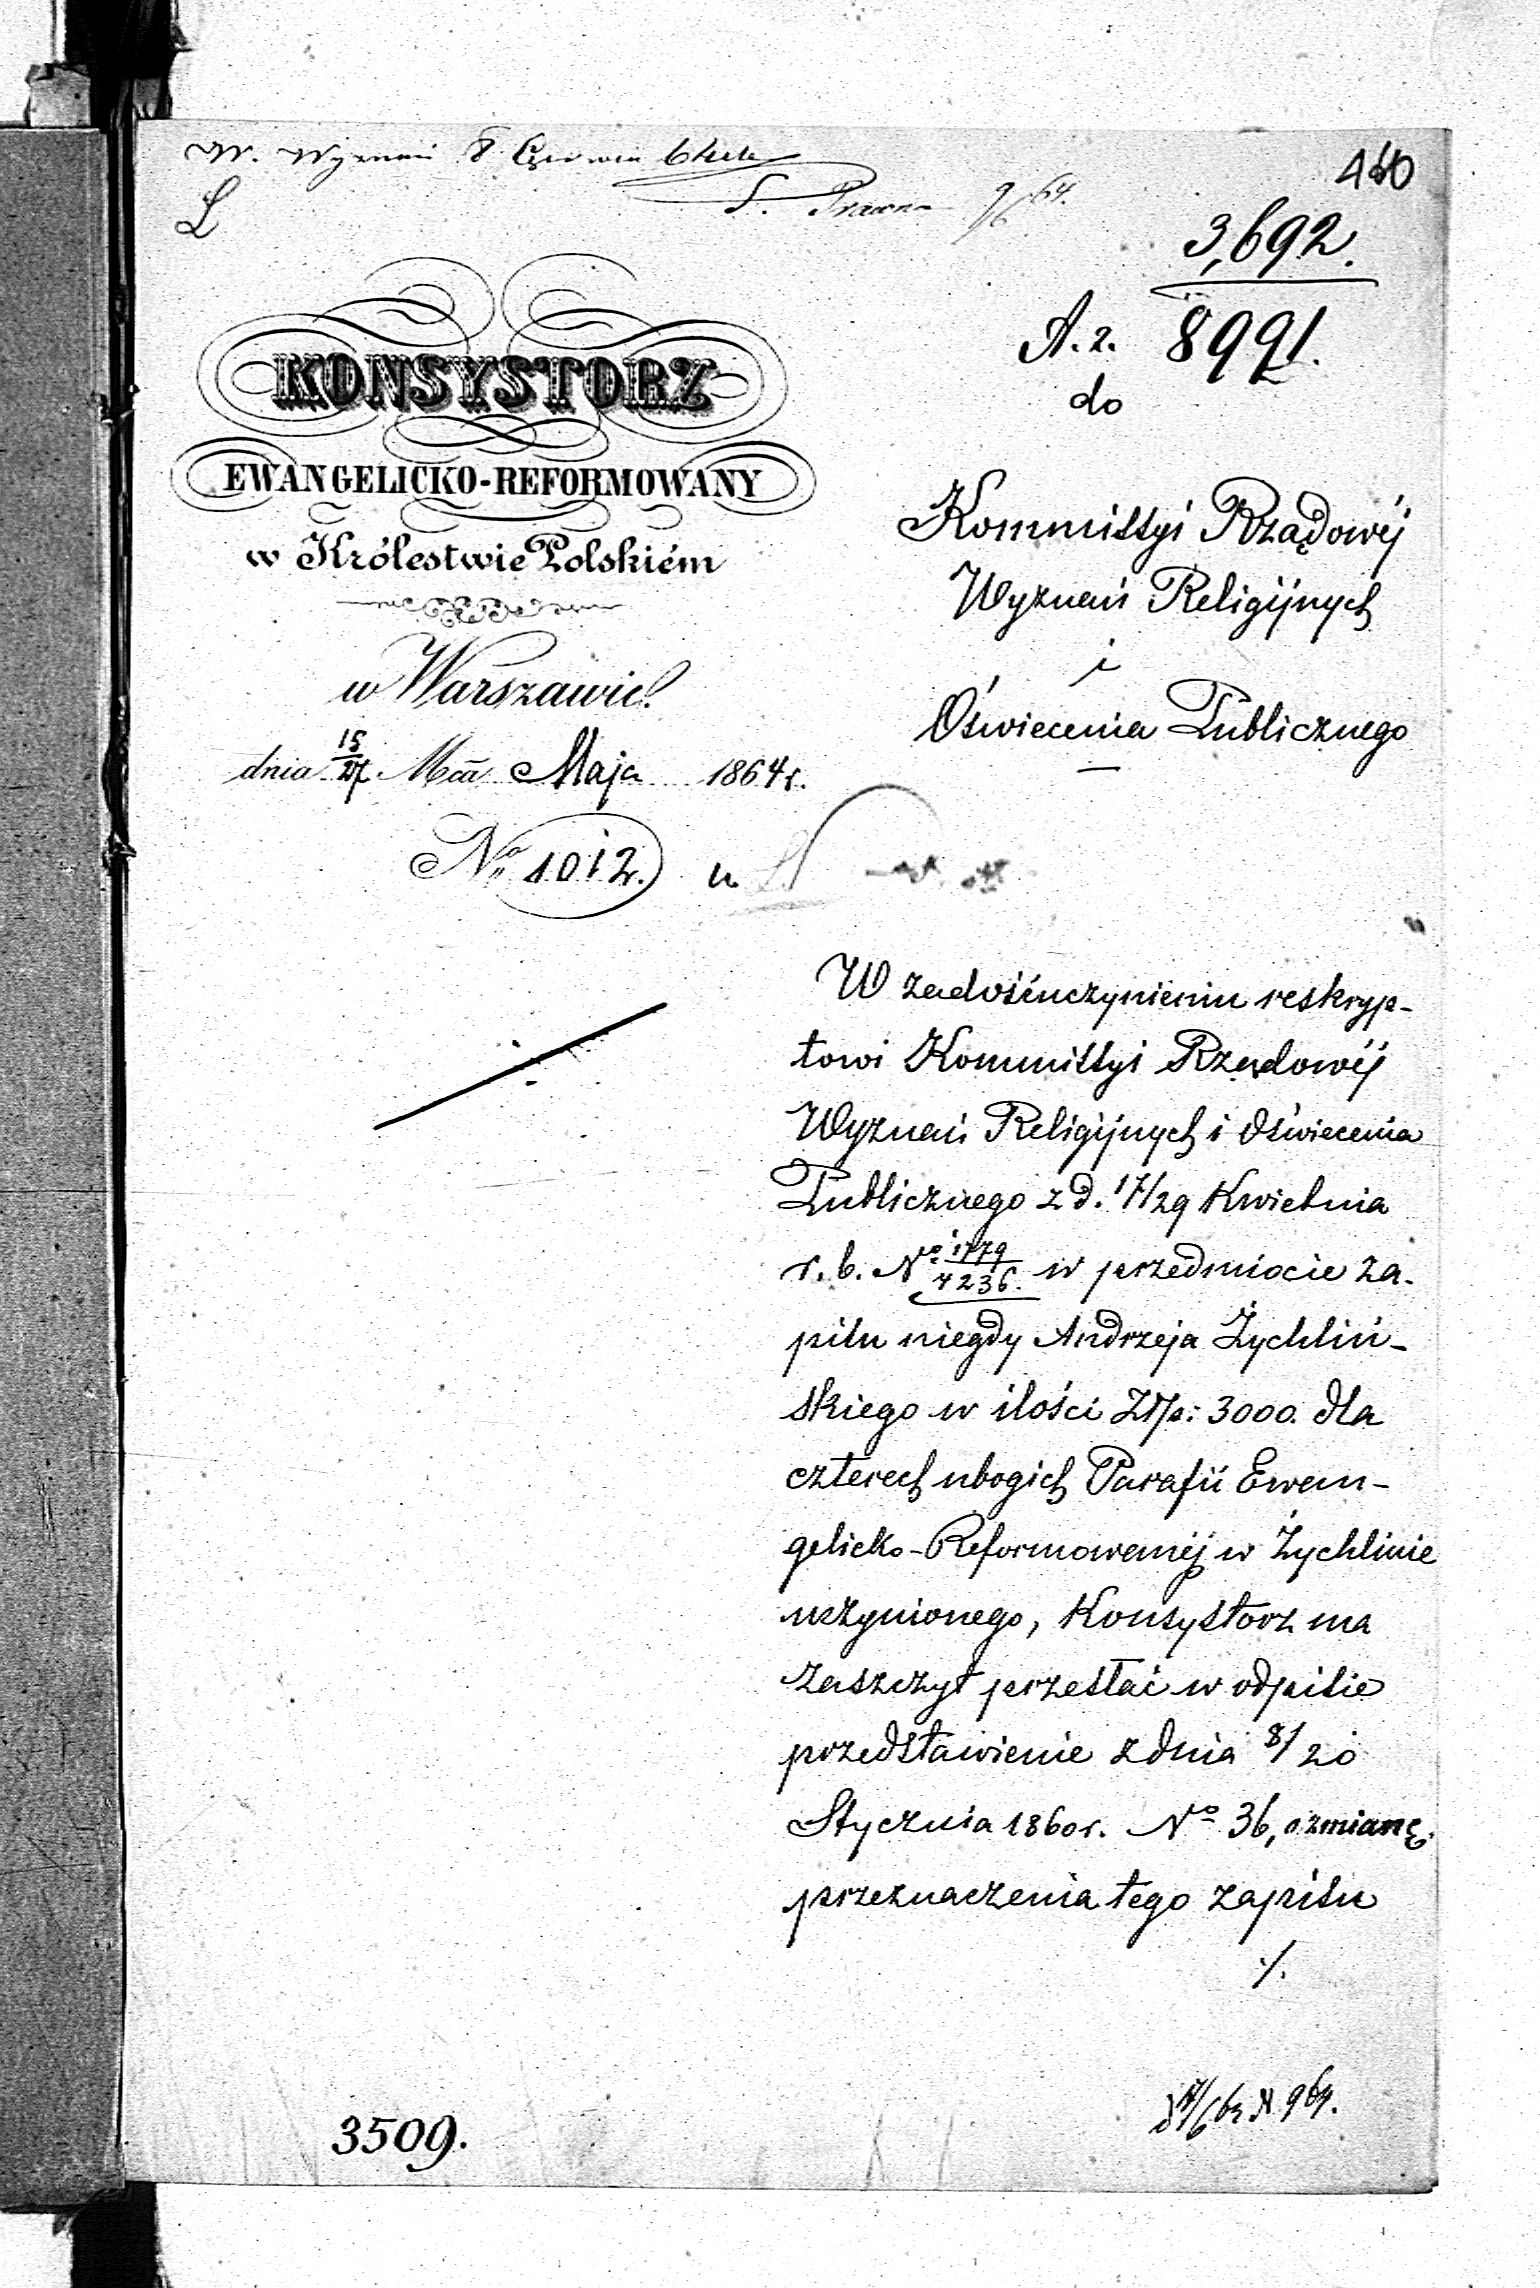 W. Wyznań 8 Czerwca
S. Prawna 9/6 64.
L
3,692.
A. 2. 8991.
do
KONSYSTORZ
EWANGELICKO-REFORMOWANY
w Królestwie Polskiém
w Warszawie.
dnia 15/27 Mca Maja 1864 r.
No 1012.
Kommissyi Rządowéj
Wyznań Religijnych
i
Oświecenia Publicznego
W zadośćuczynieniu reskryp-
towi Kommissyi Rządowéj
Wyznań Religijnych i Oświecenia
Publicznego z d. 17/29 Kwietnia
r. b. No 1779/4236. w przedmiocie za-
pisu niegdy Andrzeja Żychliń-
skiego w ilości Złp: 3000. dla
czterech ubogich Parafii Ewan-
gelicko-Reformowanéj w Żychlinie
uczynionego, Konsystorz ma
zaszczyt przesłać w odpisie
przedstawienie z dnia 8/20
Stycznia 1860 r. No 36, o zmianę
przeznaczenia tego zapisu
./.
3509.